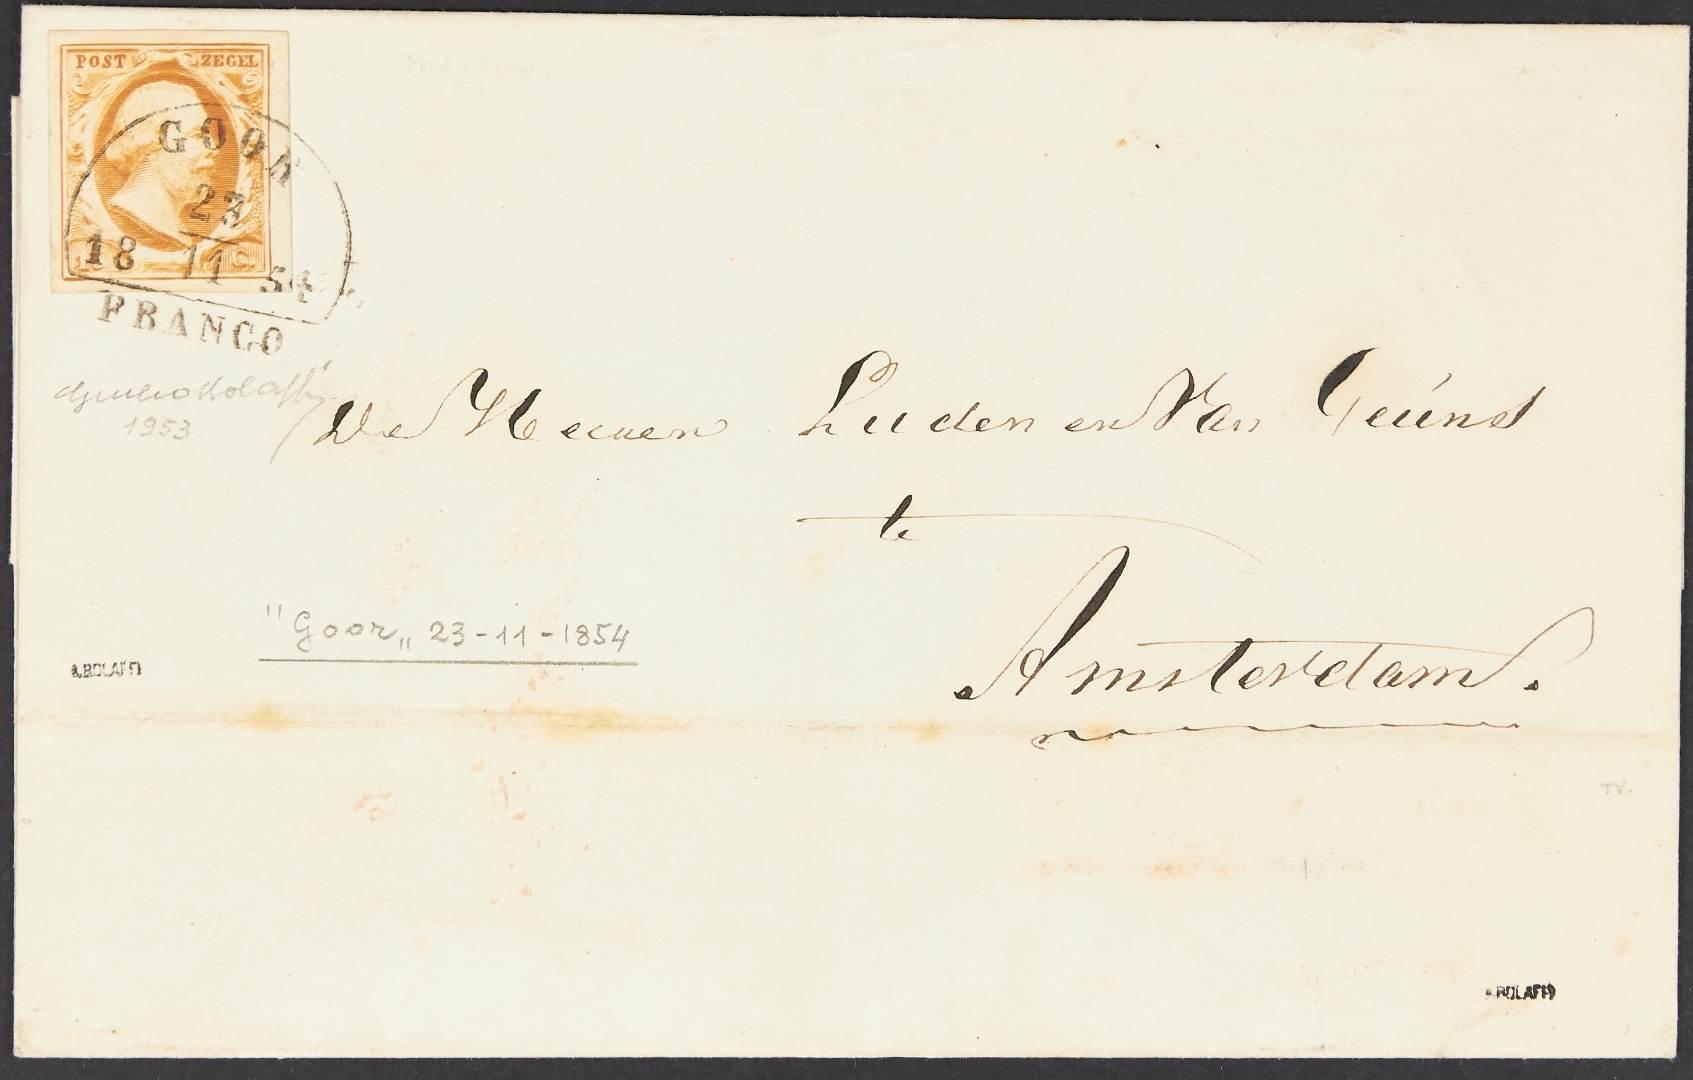 POST ZEGEL
GOOR
23
18 11 54
FRANCO
1953
De Heeren Luden en Van Geúns
te
Amsterdam.
"Goor„ 23-11-1854
A.BOLAFFI
TV.
A.BOLAFFI